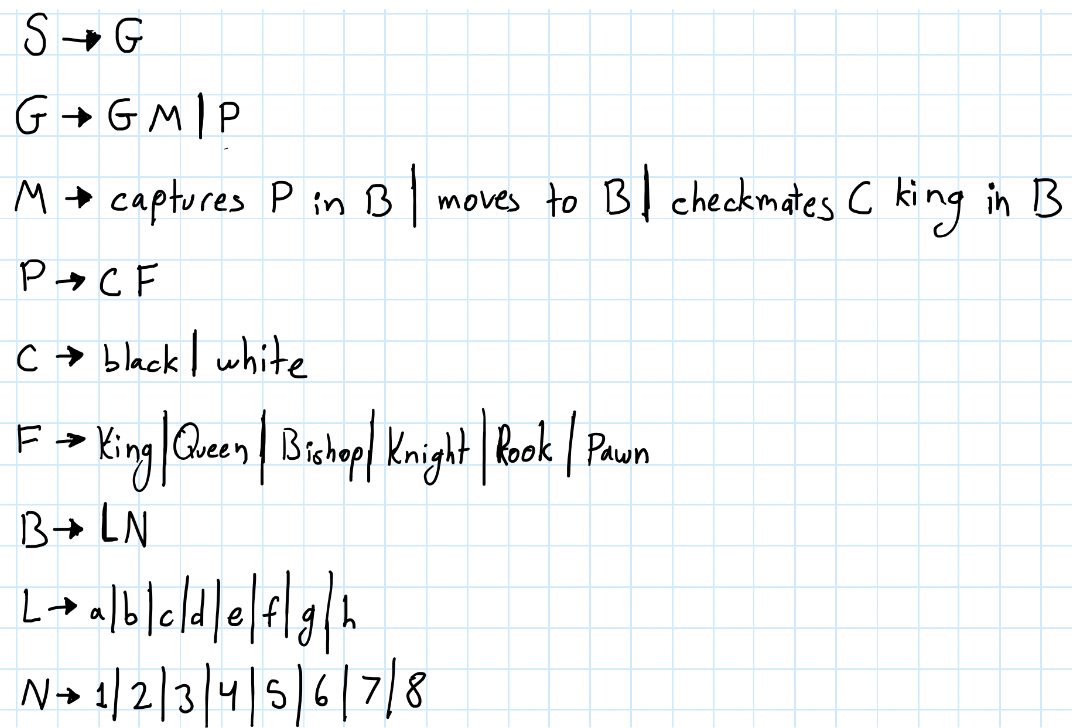 S → G
G → G M | P
M → captures P in B | moves to B | checkmates C king in B
P → C F
C → black | white
F → King | Queen | Bishop | Knight | Rook | Pawn
B → LN
L → a|b|c|d|e|f|g|h
N → 1|2|3|4|5|6|7|8